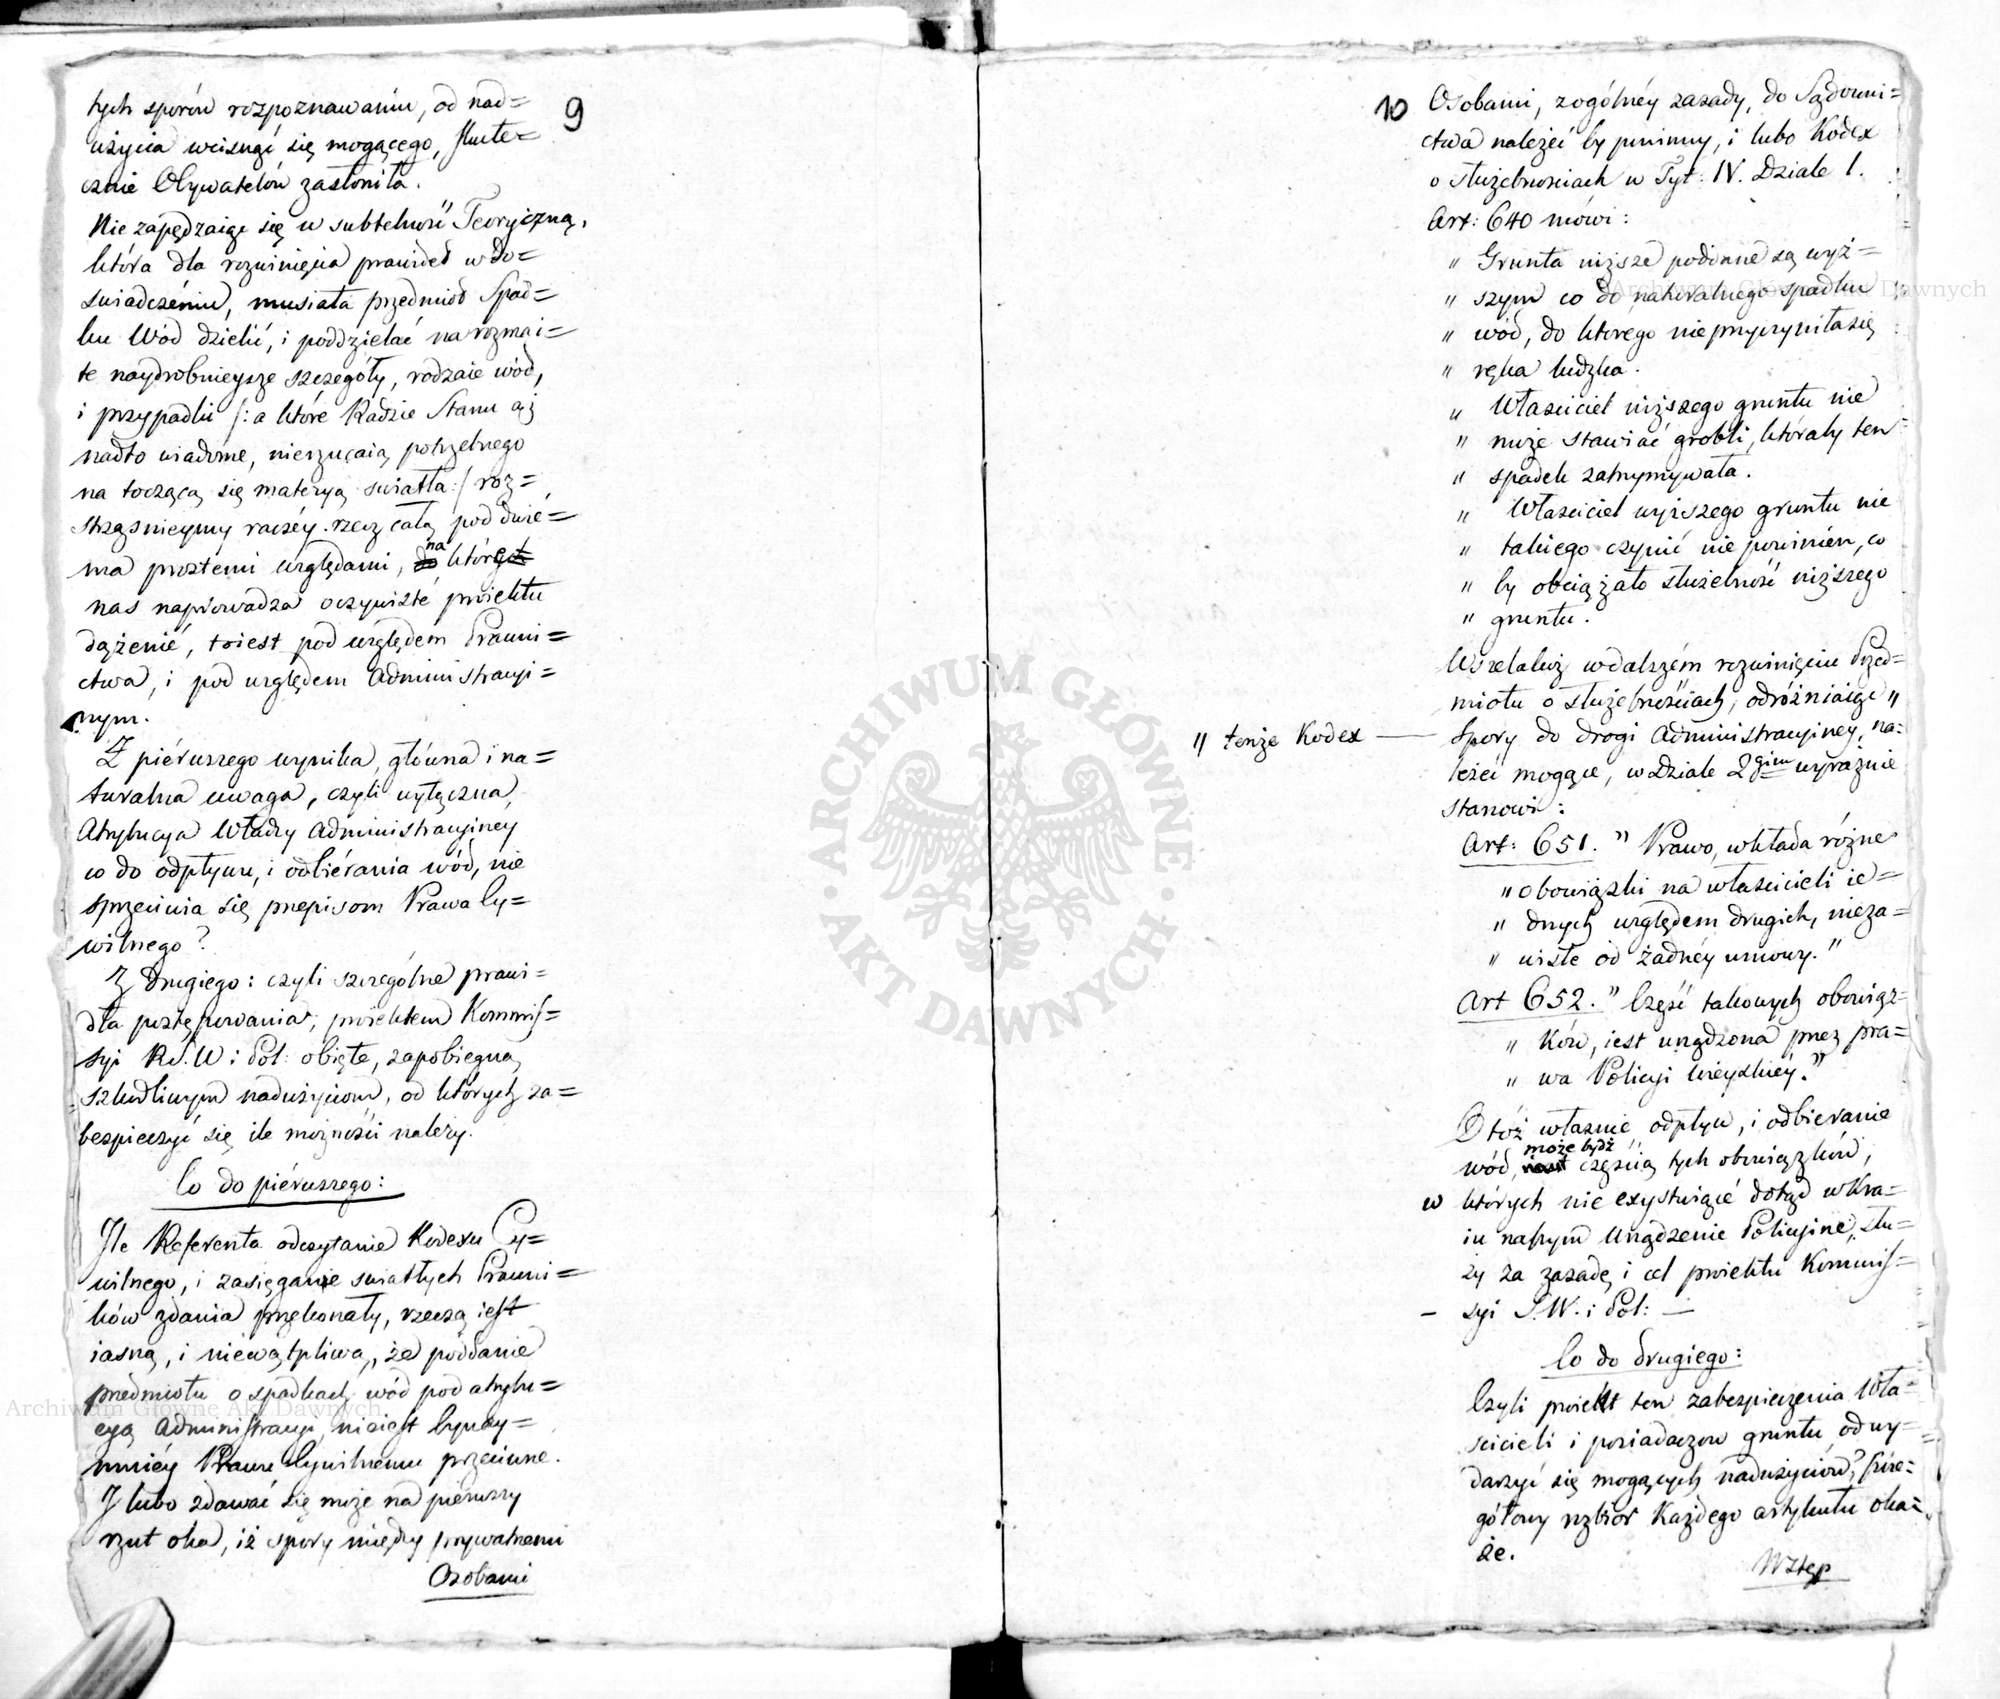 9
tych sporów rozpoznawaniu, od nad=
użycia wcisnąć się mogącego, skute=
cznie Obywatelów zasłoniła.
Nie zapędzaiąc się w subtelność Teoryczną,
która dla rozwinięcia prawideł w do=
świadczeniu, musiała przedmiot Spad=
ku Wód dzielić, i poddzielać na rozmai=
te naydrobnieysze szczegóły, rodzaie wód,
i przypadki /: a które Radzie Stanu aż
nadto wiadome, nierzucaią potrzebnego
na toczącą się materyą światła :/ roz=
strząśnieymy raczéy rzecz całą pod dwié=
ma prostemi względami, na któré
nas naprowadza oczywisté proiektu
dążenié, toiest pod względem Prawni=
ctwa, i pod względem Administracyi=
nym.
Z piérwszego wynika, główna i na=
turalna uwaga, czyli wyłączna,
Atrybucya Władzy Administracyiney
co do odpływu, i odbiérania wód, nie
sprzeciwia się przepisom Prawa Cy=
wilnego?
Z Drugiego: czyli szczególne prawi=
dła postępowania, proiektem Kommis=
syi R.S.W i Pol: obięte, zapobiegną
szkodliwym nadużyciom, od których za=
bezpieczyć się ile możności należy.
Co do piérwszego:
Ile Referenta odczytanie Kodexu Cy=
wilnego, i zasięganie światłych Prawni=
ków zdania przekonały, rzeczą iest
iasną, i niewątpliwą, że poddanie
przedmiotu o spadkach wód pod atrybu=
cyą Administracyi, nieiest bynay=
mniéy Prawu Cywilnemu przeciwne.
I lubo zdawać się może na pierwszy
rzut oka, iż spory między prywatnemi
Osobami
10
Osobami, z ogólnéy zasady, do Sądowni=
ctwa należeć by powinny, i lubo Kodex
o służebnosciach w Tyt: IV. Dziale I.
Art: 640 mówi:
" Grunta niższe poddane są wyż=
" szym co do naturalnego spadku
" wód, do którego nieprzyczyniła się
" ręka ludzka.
" Właściciel niższego gruntu nie
" może stawiać grobli, któraby ten
" spadek zatrzymywała.
" Właściciel wyższego gruntu nie
" takiego czynić nie powinien, co
" by obciążało służebność niższego
" gruntu.
Wszelakoż w dalszém rozwinięciu Przed=
miotu o służebnościach, odróżniaiąc "
" tenże Kodex —
Spory do drogi Administracyiney, na=
leżeć mogące, w Dziale 2gim wyraźnie
stanowi:
Art: 651. " Prawo, wkłada różne
" obowiązki na właścicieli ie=
" dnych względem drugich, nieza=
" wisłe od żadnéy umowy."
Art 652. " Część takowych obowiąz=
" ków, iest urządzona przez pra=
" wa Policyi wieyskiéy."
Otóż własnie odpływ, i odbieranie
wód, może bydź częścią tych obowiązków,
w których nie exystuiącé dotąd w Kra=
iu naszym Urządzenie Policyjne, słu=
ży za zasadę i cel proiektu Kommis=
— syi S.W. i Pol: —
Co do drugiego:
Czyli proiekt ten zabezpieczenia Wła=
ścicieli i posiadaczow gruntu od wy=
darzyć się mogących nadużyciów, szcze=
gółowy rozbiór Każdego artykułu oka=
że.
Wstęp
Archiwum Główne Akt Dawnych
Archiwum Główne Akt Dawnych
ARCHIWUM GŁÓWNE · AKT DAWNYCH ·